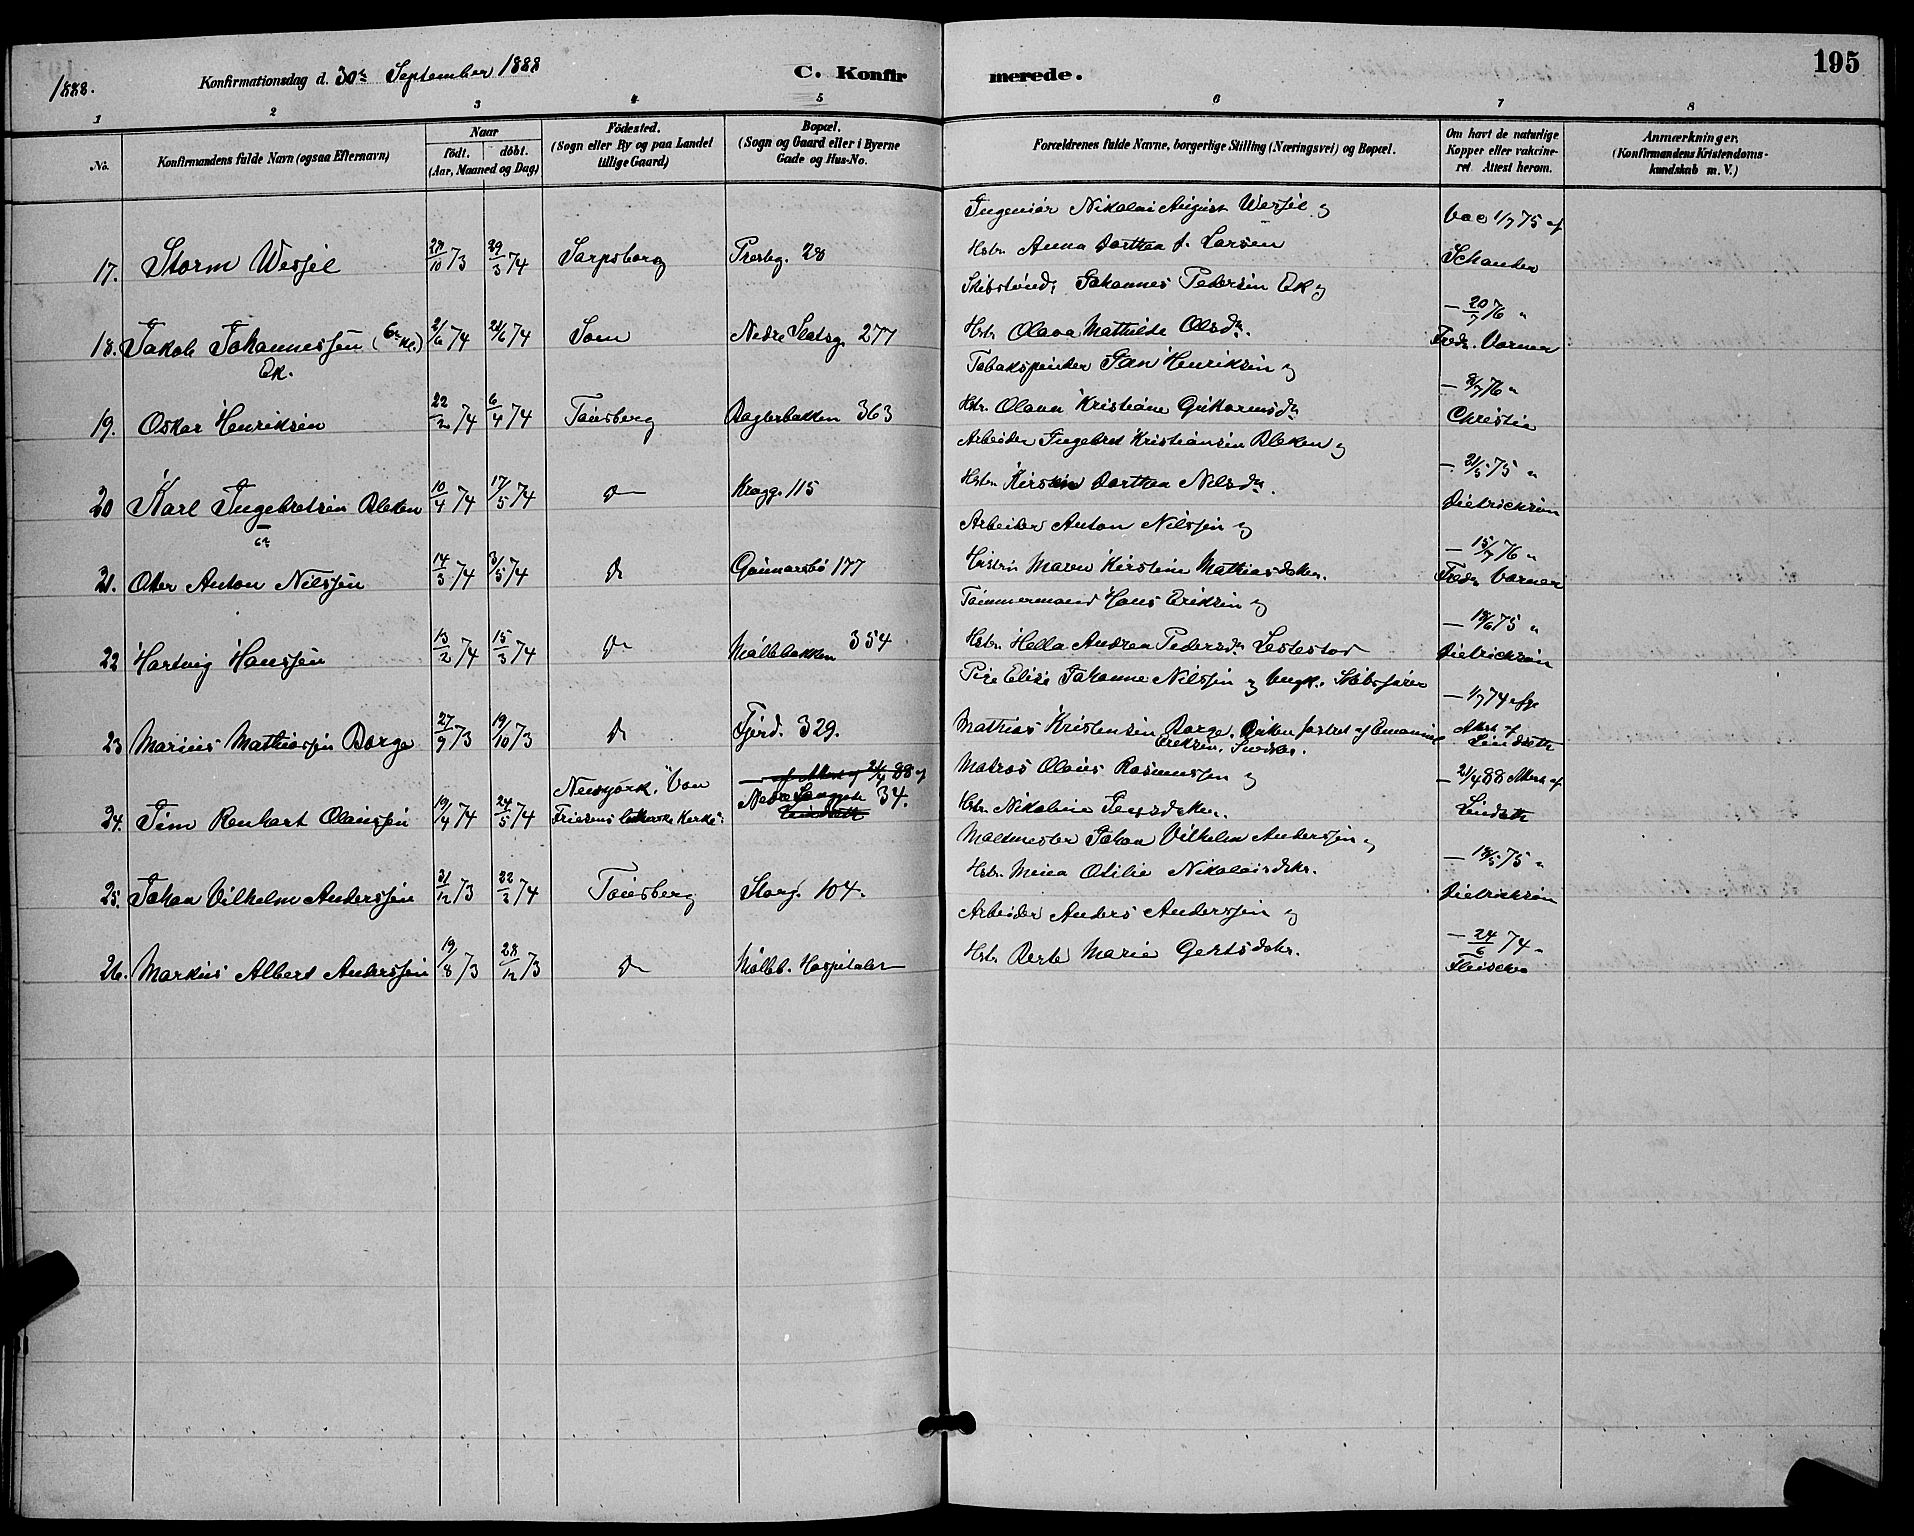 1888.
Konfirmationsdag d. 30te September 1888
C. Konfirmerede.
195
1 2 3 4 5 6 7 8
No.
Konfirmandens fulde Navn (ogsaa Efternavn)
Naar
født. døbt.
(Aar, Maaned og Dag)
Fødested.
(Sogn eller By og paa Landet
tillige Gaard)
Bopæl.
(Sogn og Gaard eller i Byerne
Gade og Hus-No.
Forældrenes fulde Navne, borgerlige Stilling (Næringsvei) og Bopæl.
Om havt de naturlige
Kopper eller vakcine-
ret. Attest herom.
Anmærkninger.
(Konfirmandens Kristendoms-
kundskab m. V.)
17. Storm Wessel 10 73 29/3 74 Sarpsborg Presteg. 28
Ingeniør Nikolai August Wessel og
Hstr. Anna Dorthea f. Larsen
vac 1/7 75 af
18. Jakob Johannessen
Ek.
2/6 74 21/6 74 Søm Nedre Slotsg. 277
Johannes Pedersen Ek og
Hstr. Olava Mathilde Olsdr.
— 20/7 76 "
Fredr. Vorner
19. Oskar Henriksen 22/2 74 6/4 74 Tønsberg Baglerbakken 363
Tobakspinder Henriksen og
Hstr. Olava Kristiane
— 76 "
Christie
20 Karl Ingebretsen Bleken 10/4 74 17/5 74 Do Kragg. 115
Arbeider Ingebret Kristiansen Bleken og
Hstr. Kirstin Dorthea Nilsdr.
— 21/5 75 "
Dietrichson
21. Otto Anton Nilssen 14/3 74 3/5 74 Do Gunnarsbø 177
Arbeider Anton Nilssen og
Hustru Maren Kirstine Mathiasdtr.
— 15/7 76 "
Fredr Vorner
22 Hartvig Hanssen 13/2 74 15/3 74 Do Møllebakken 354
Tømmermand Hans Eriksen og
Hstr. Hella Andrea Pedersdr
— 18/6 75 "
Dietrichson
23 Marius Mathiassen Borge 27/9 73 19/10 73 Do Fjord. 329.
Pige Elise Johanne Nilssen og Ungk.
Mathias Kristensen Borge. af Emanuel
Eriksen,
— 1/7 74
Attest af
Lindseth
24. Jim Renhart Olaussen 19/4 74 24/5 74
Newyork, Von
Friesens lutherske Kerke.
— af Attest af 21/4 88 af
Nedre Langgate 34.
Lindseth
Matros Olaus Rasmussen og
Hstr. Nikoline Jensdatter.
— 21/4 88 Attest af
Lindseth
25. Johan Vilhelm Anderssen 31/12 73 22/2 74 Tønsberg Storg. 104.
Maltmester Johan Vilhelm Anderssen og
Hstr. Otilie Nikolaisdtr.
— 18/5 75 "
Dietrichson
26. Markus Albert Anderssen 19/8 73 28/12 73 Do Mølleb. Hospitalet
Arbeider Anders Anderssen og
Hstr. Berte Marie Gertsdtr.
— 24/6 74 "
Fleischer